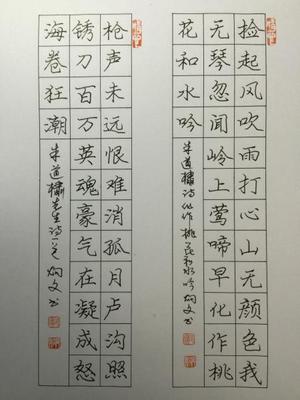 捡起风吹雨打心山无颜色我
无琴忽闻岭上莺啼早化作桃
花和水吟
朱道诗化作桃花和水吟炯文书
枪声未远恨难消孤月卢沟照
锈刀百万英魂豪气在凝成怒
海卷狂潮
朱道先生诗一首炯文书